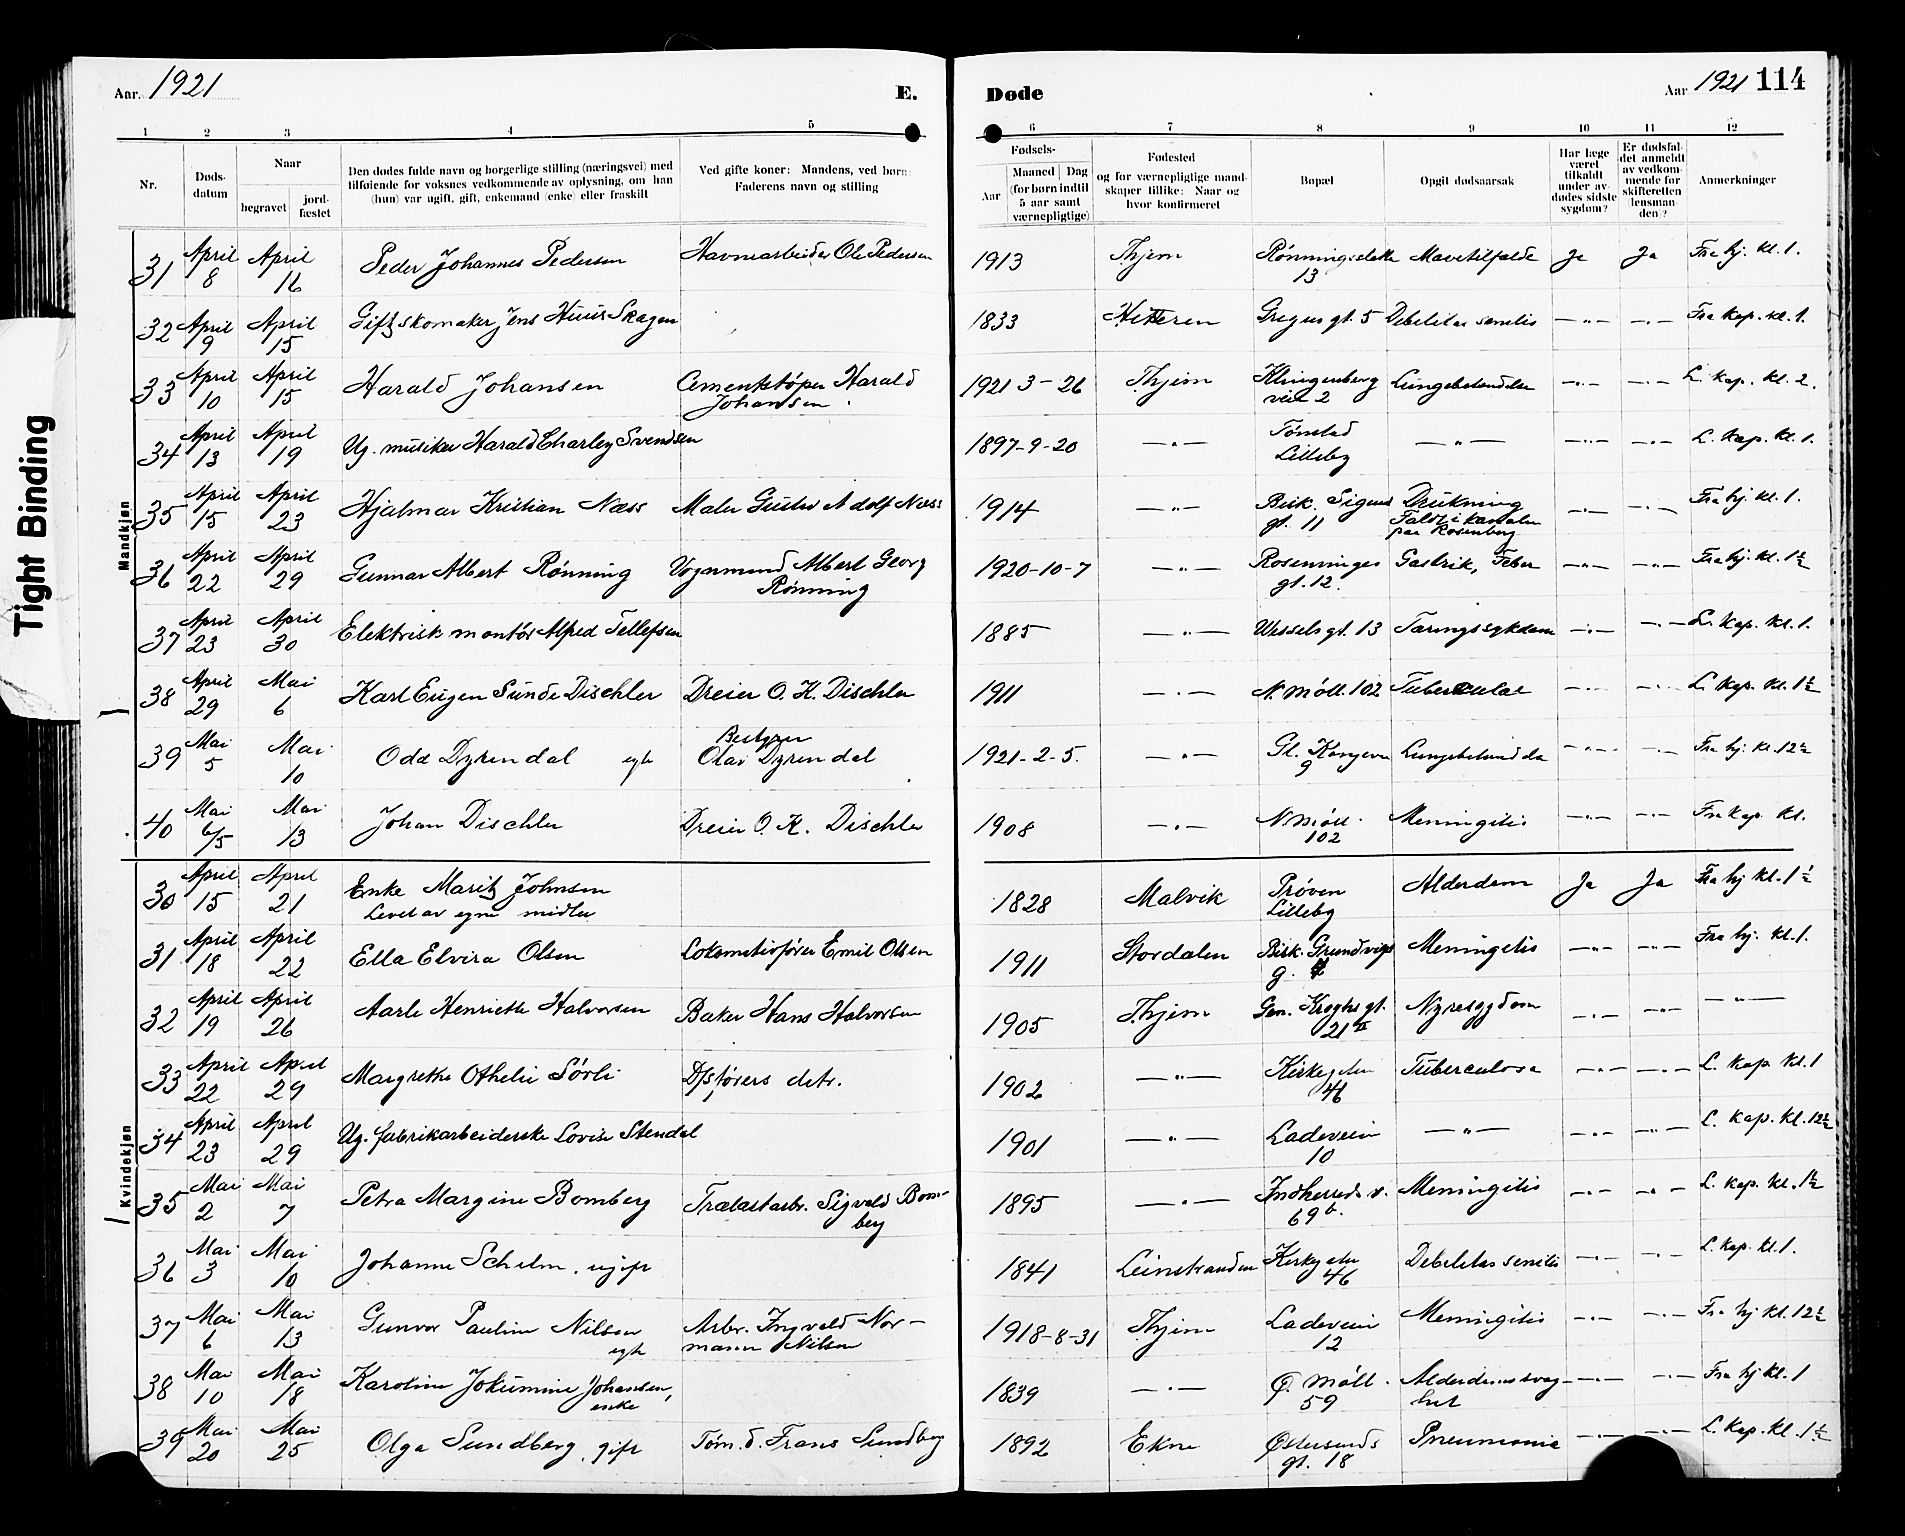 Tight Binding
Aar. 1921
E.
Døde
Aar 1921 114
1 2 3 4 5 6 7 8 9 10 11 12
Nr.
Døds-
datum
Naar
begravet
jord-
fæstet
Den dødes fulde navn og borgerlige stilling (næringsvei) med
tilføiende for voksnes vedkommende av oplysning, om han
(hun) var ugift, gift, enkemand (enke) eller fraskilt
Ved gifte koner: Mandens, ved børn:
Faderens navn og stilling
Fødsels-
Aar
Maaned Dag
(for børn indtil
5 aar samt
værnepligtige)
Fødested
og for værnepligtige mand-
skaper tillike: Naar og
hvor konfirmeret
Bopæl
Opgit dødsaarsak
Har læge
været
tilkaldt
under av-
dødes sidste
sygdom?
Er dødsfal-
det anmeldt
av vedkom-
mende for
skifteretten
(lensman-
den)?
Anmerkninger
Mandkjøn
31 April 8 April 16 Peder Johannes Pedersen Havnearbeider Ole Pedersen 1913 Thjem Rønningsletta 13 Mavetilfælde Ja Ja Fra hj. kl. 1.
32 April 9 April 15 Gift skomaker Jens Huus Skagen 1833 Hitteren Gregus gt. 5 Debilitas senilis —"— —"— Fra kap. kl. 1.
33 April 10 April 15 Harald Johansen Cementstøper Harald Johansen 1921 3-26 Thjem Klingenberg veit 2 Lungebetændelse —"— —"— L. kap. kl. 2.
34 April 13 April 19 Ug. musiker Harald Charley Svendsen 1897-9-20 —"— Tønstad Lilleby —"— —"— —"— L. kap. kl. 1.
35 April 15 April 23 Hjalmar Kristian Næss Maler Gustav Adolf Næss 1914 —"— Bisk. Sigurds gt. 11 Drukning Faldt i kanalen paa Rosenborg —"— —"— Fra hj. kl. 1.
36 April 22 April 29 Gunnar Albert Rønning Vognmand Albert Georg Rønning 1920-10-7 —"— Rosenninges gt. 12. Gastrik, Feber —"— —"— Fra hj. kl. 1½
37 April 23 April 30 Elektrisk montør Alfred Tellefsen 1885 —"— Wessels gt. 13 Tæringssykdom —"— —"— L. kap. kl. 1.
38 April 29 Mai 6 Karl Eugen Sunde Dischler Dreier O. K. Dischler 1911 —"— N. Møll. 102 Tuberculae —"— —"— L. kap. kl. 1½
39 Mai 5 Mai 10 Odd Dyrendal egte Olav Dyrendal 1921-2-5. —"— Gl. Kongevei 9 Lungebetændelse —"— —"— Fra hj. kl. 12½
40 Mai 6/5 Mai 13 Johan Dischler Dreier O. K. Dischler 1908 —"— N. Møll. 102 Meningitis —"— —"— Fra kap. kl.
Kvindekjøn
30 April 15 April 21 Enke Marit Johnsen Levet av egne midler 1828 Malvik Prøven Lilleby Alderdom Ja Ja Fra hj kl. 1½
31 April 18 April 22 Ella Elvira Olsen Lokomotivfører Emil Olsen 1911 Stordalen Bisk. Grundvigs g. Meningitis —"— —"— Fra hj. kl. 1.
32 April 19 April 26 Aarle Henriette Halvorsen Baker Hans Halvorsen 1905 Thjem Gen. Kroghs gt. 21 II Nyresygdom —"— —"— —"—
33 April 22 April 29 Margrethe Othelie Sørli D/s førers datr. 1902 —"— Kirkegaten 46 Tuberculose —"— —"— L. kap kl. 1
34 April 23 April 29 Ug. fabrikarbeiderske Lovise Stendal 1901 —"— Ladeveien 10 —"— —"— —"— L. kap. kl. 12½
35 Mai 2 Mai 7 Petra Margine Bomberg Trælastarbr. Sigvald Bom-berg 1895 —"— Indherreds v. 69 b. Meningitis —"— —"— L. kap. kl. 1½
36 Mai 3 Mai 10 Johanne Schelm, ugift 1841 Leinstranden Kirkegaten 46 Debilitas senilis —"— —"— L. kap. kl. 1.
37 Mai 6 Mai 13 Gunvor Pauline Nilsen egte Arbr. Ingvald Nor-mann Nilsen 1918-8-31 Thjem Ladeveien 12 Meningitis —"— —"— Fra hj kl. 12½
38 Mai 10 Mai 18 Karoline Jokumine Johansen, enke 1839 —"— Ø. Møll. 59 Alderdomssvag-het —"— —"— Fra hj kl. 1
39 Mai 20 Mai 25 Olga Sundberg, gift Tøm. d. Frans Sundberg 1892 Ekne Østersunds gt. 18 Pneumonie —"— —"— L. kap. kl. 1½